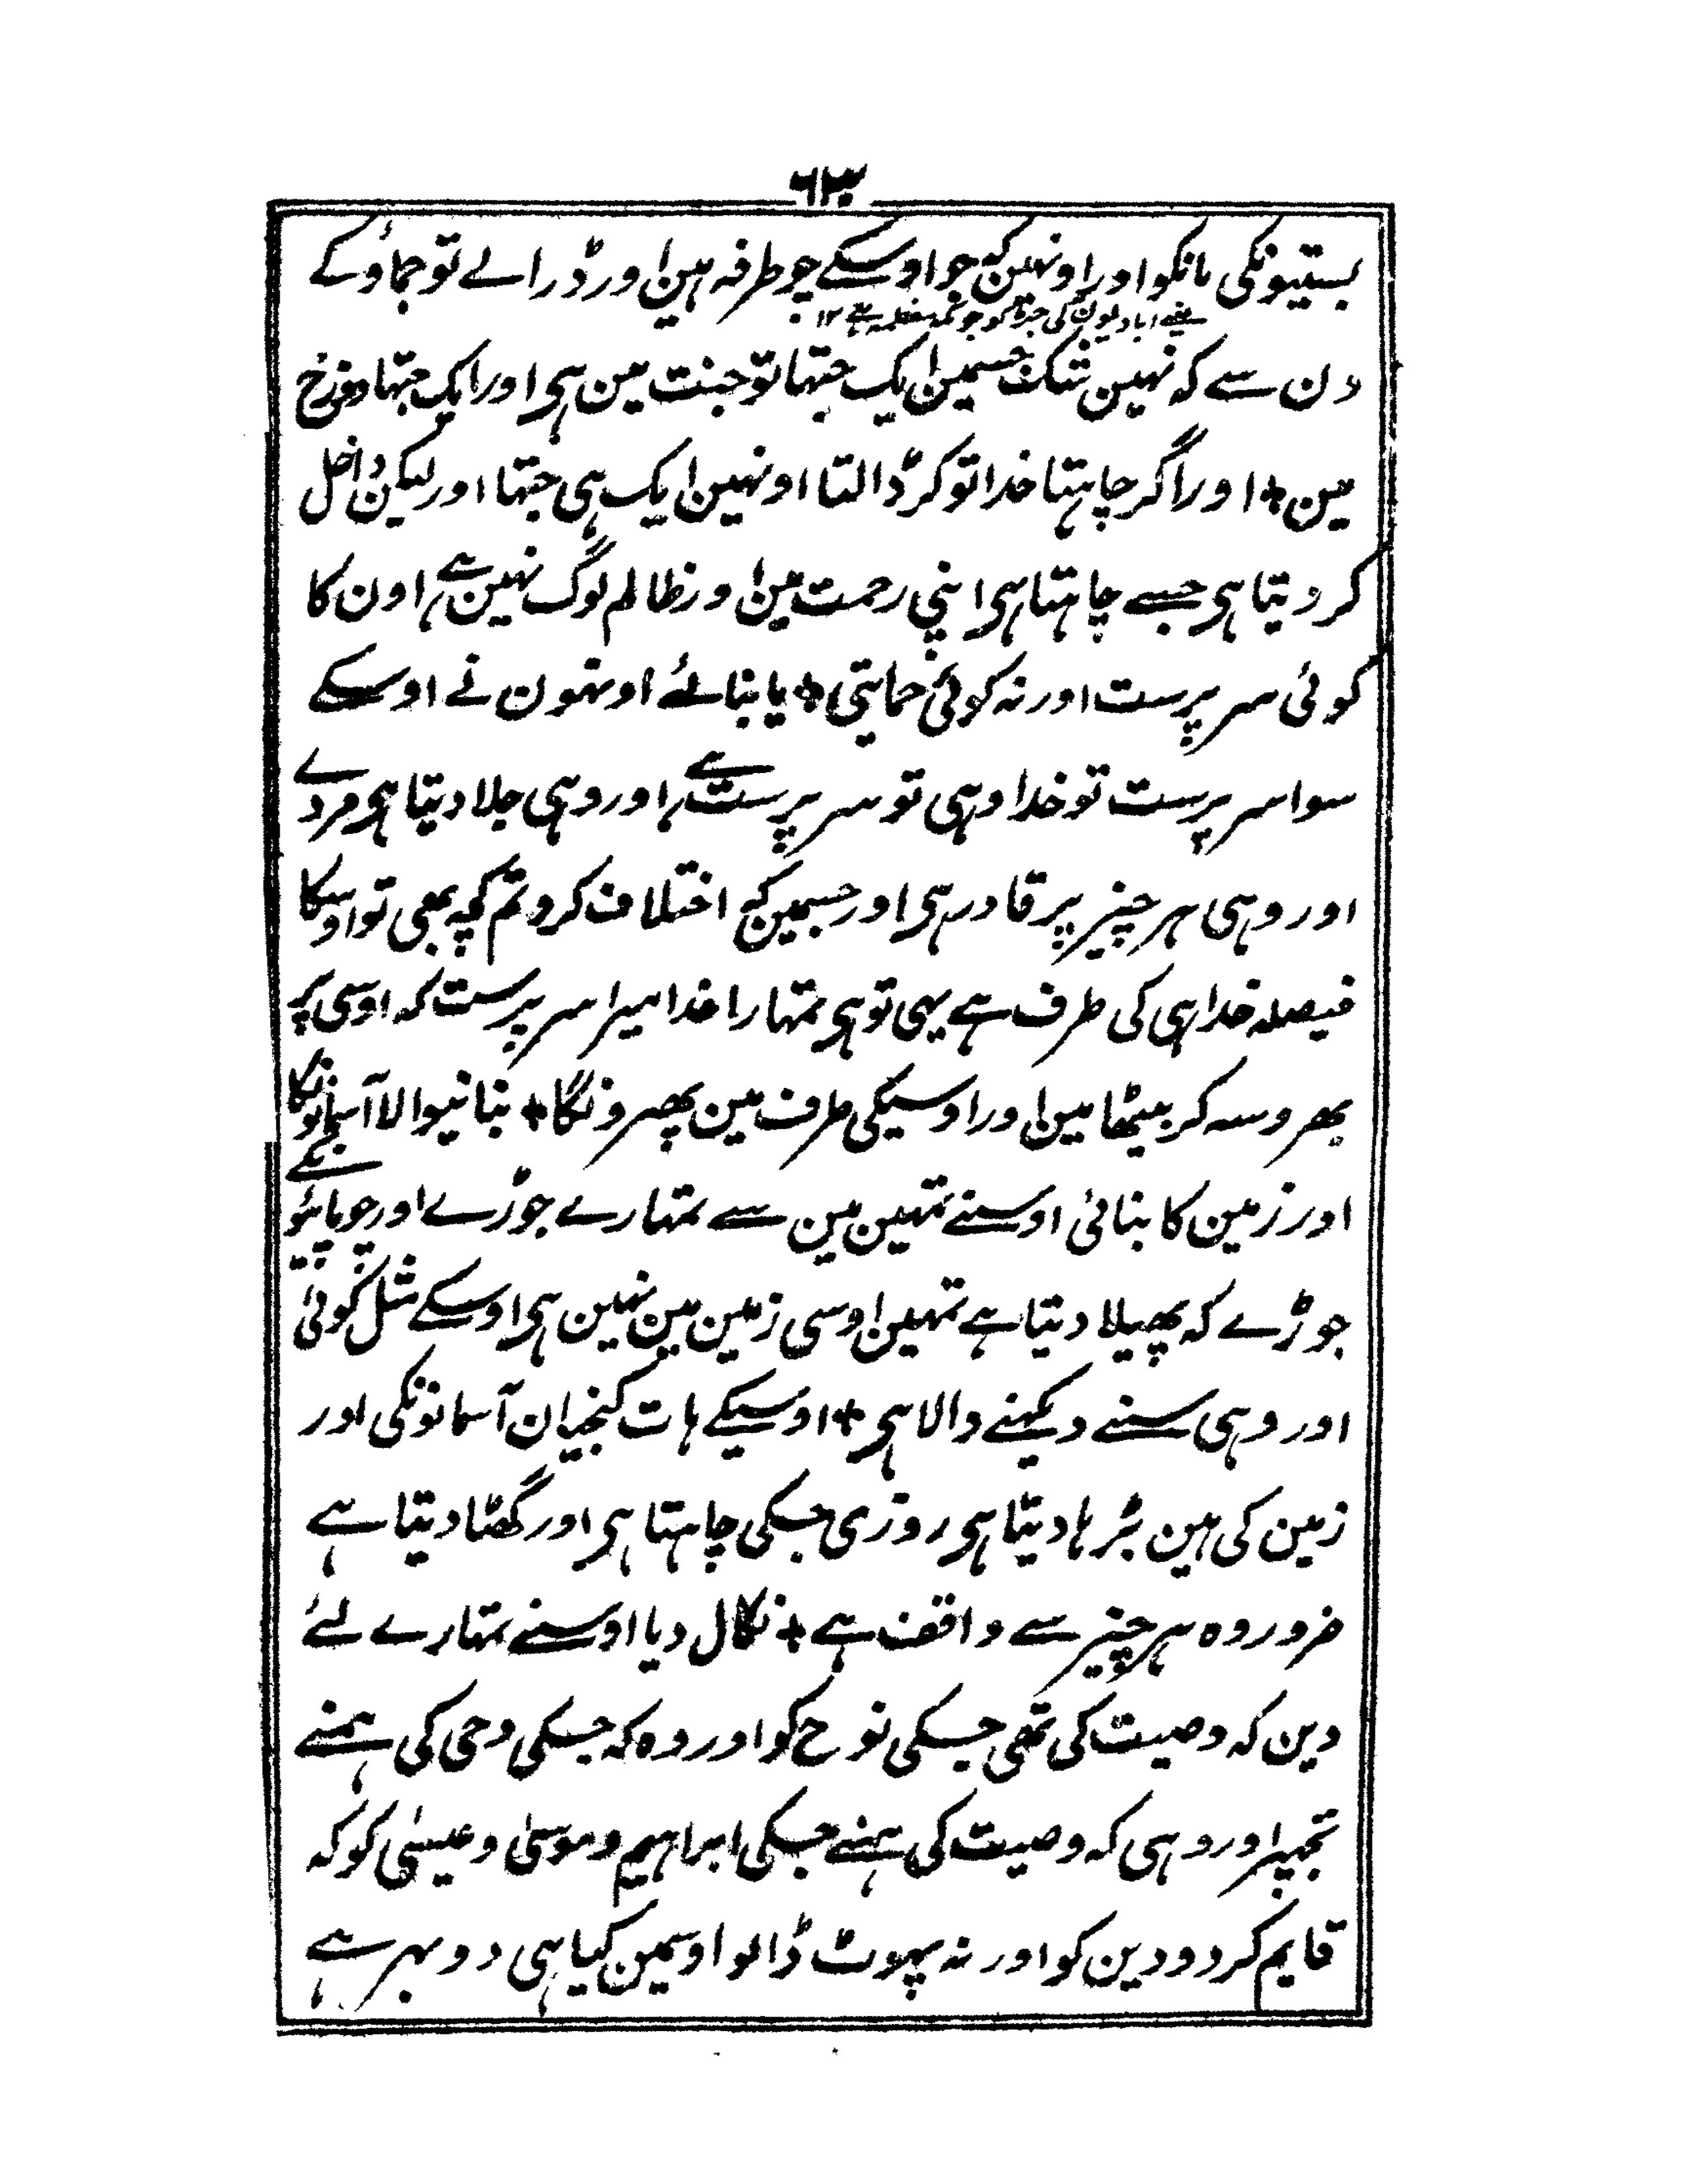 ۶۲۳
بستیونکی مانکو اور اونہین کہ جو اوسکے چوطرفہ ہین اور ڈر الے تو جماؤ کے
یعنے آبادیون کی جو کہ معظمہ ہے ۱۲
دن سے کہ نہین شک جسمین ایک جتہا تو جنت مین ہی اور ایک جتہا دوزخ
مین + اور اگر چاہتا خدا تو کر ڈالتا اونہین ایک ہی جتہا اور لیکن داخل
کر دیتا ہی جسے چاہتا ہی اپنی رحمت مین اور ظالم لوگ نہین ہے اون کا
کوئی سر پرست اور نہ کوئی حمایتی + یا بنالئے اونہون نے اوسکے
سوا سر پرست تو خدا وہی تو سر پرست ہے اور وہی جلا دیتا ہی مردے
اور وہی ہر چیز پر قادر ہی اور جسمین کہ اختلاف کرو تم کچہ بھی تو اوسکا
فیصلہ خدا ہی کی طرف ہے یہی تو ہی تمہارا خدا میرا سر پرست کہ اوسی پر
بھروسہ کر بیٹھا مین اور اوسیکی طرف مین پھرونگا + بنانیوالا آسمانونکا
اور زمین کا بنائی اوسنے تمہین مین سے تمہارے جوڑے اور چوپائیونکے
جوڑے کہ پھیلا دیتا ہے تمہین اوسی زمین مین نہین ہی اوسکے مثل کوئی
اور وہی سننے دیکہنے والا ہی + اوسیکے ہات کنجیان آسمانونکی اور
زمین کی ہین بڑہا دیتا ہی روزی جسکی چاہتا ہی اور گھٹا دیتا ہے
ضرور وہ ہر چیز سے واقف ہے + نکال دیا اوسنے تمہارے لئے
دین کہ وصیت کی تھی جسکی نوح کو اور وہ کہ جسکی وحی کی ہمنے
تجہپر اور وہی کہ وصیت کی ہمنے جسکی ابراہیم و موسیٰ و عیسیٰ کو کہ
قایم کردو دین کو اور نہ پہوٹ ڈالو اوسمین کیا ہی دو بہر ہے